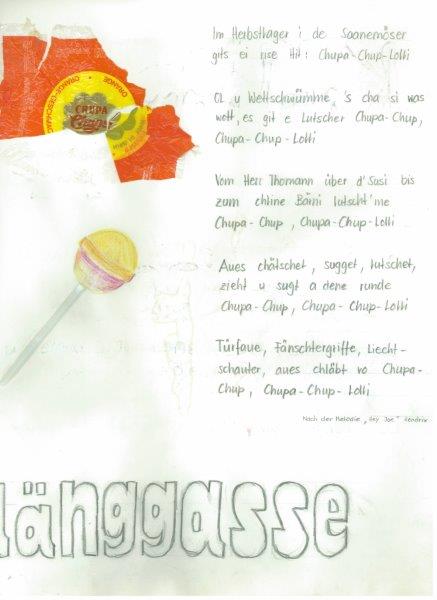 ORANGE
CHUPA
Chups
Im Herbstlager i de Saanemöser
gits ei riise Hit: Chupa-Chup-Lolli
OL u Wettschwümme, 's cha si was
wott, es git e Lutscher Chupa-Chup,
Chupa-Chup-Lolli
Vom Herr Thomann über d'Susi bis
zum chline Bäni lutscht 'me
Chupa-Chup, Chupa-Chup-Lolli
Aues chätschet, sugget, lutschet,
zieht u sugt a dene runde
Chupa-Chup, Chupa-Chup-Lolli
Türfaue, Fänschtergriffe, Liecht-
schauter, aues chläbt vo Chupa-
Chup, Chupa-Chup-Lolli
Nach der Melodie „Hey Joe" Hendrix
länggasse